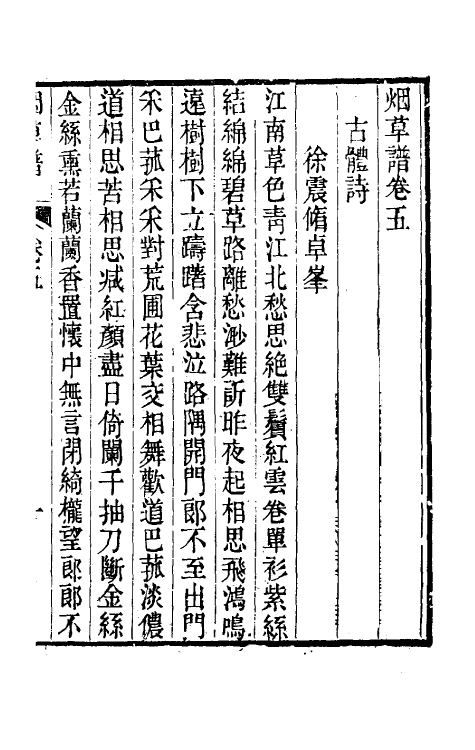 烟草譜卷五
古體詩
徐震脩卓峯
江南草色靑江北愁思絶雙鬢紅雲卷單衫紫絲
結綿綿碧草路離愁渺難訴昨夜起相思飛鴻鳴
遠樹樹下立躊躇含悲泣路隅開門郞不至出門
采巴菰采采對荒圃花葉交相舞歡道巴菰淡儂
道相思苦相思减紅顏盡日倚闌干抽刀斷金絲
金絲熏若蘭蘭香置懷中無言閉綺櫳望郞郞不